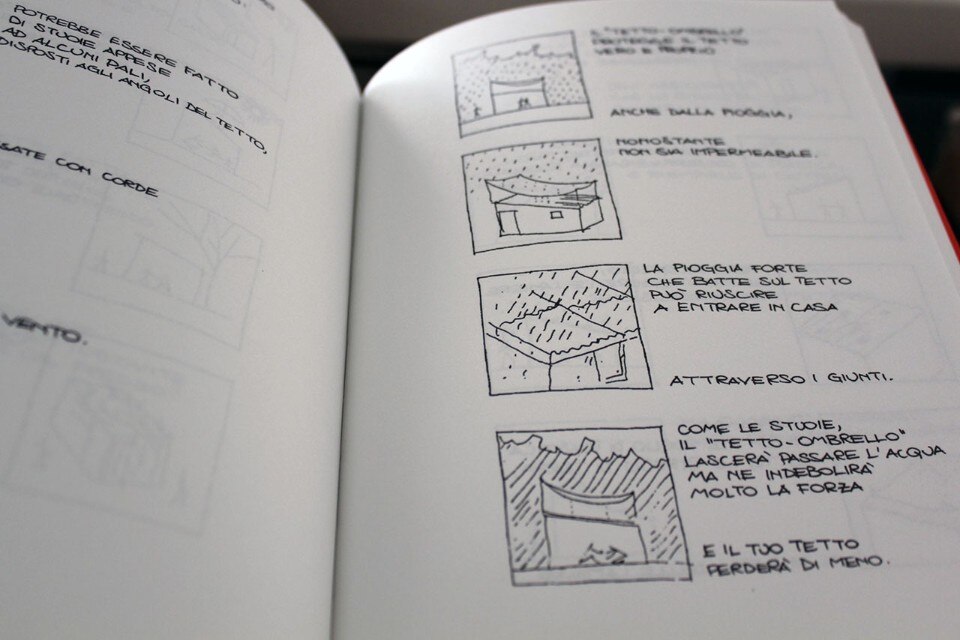 POTREBBE ESSERE FATTO
DI STUOIE APPESE
AD ALCUNI PALI,
DISPOSTI AGLI ANGOLI DEL TETTO,
CON CORDE
VENTO.
IL "TETTO-OMBRELLO"
IL TETTO
VERO E PROPRIO
ANCHE DALLA PIOGGIA,
NONOSTANTE
NON SIA IMPERMEABILE.
LA PIOGGIA FORTE
CHE BATTE SUL TETTO
PUÒ RIUSCIRE
A ENTRARE IN CASA
ATTRAVERSO I GIUNTI.
COME LE STUOIE,
IL "TETTO-OMBRELLO"
LASCERÀ PASSARE L'ACQUA
MA NE INDEBOLIRÀ
MOLTO LA FORZA
E IL TUO TETTO
PERDERÀ DI MENO.